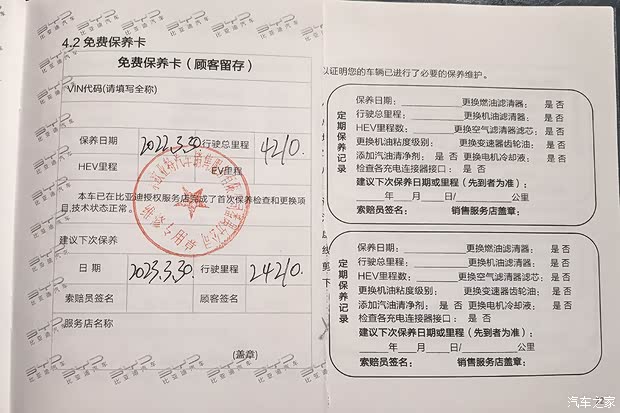 4.2 免费保养卡
免费保养卡（顾客留存）
VIN代码(请填写全称)
保养日期 2022.3.30 行驶总里程 4210.
HEV里程 EV里程
本车已在比亚迪授权服务店完成了首次保养检查和更换项
目,技术状态正常。
建议下次保养
日 期 2023.3.30. 行驶里程 24210.
索赔员签名 顾客签名
服务店名称
(盖章)
比亚迪汽车
以证明您的车辆已进行了必要的保养维护。
定期保养记录
保养日期：__________更换燃油滤清器： 是 否
行驶总里程：__________更换机油滤清器： 是 否
HEV里程数：__________更换空气滤清器滤芯：是 否
更换机油粘度级别：______更换变速器齿轮油： 是 否
添加汽油清净剂： 是 否 更换电机冷却液： 是 否
检查各充电连接器接口： 是 否
建议下次保养日期或里程（先到者为准）：
_____年____月____日/_______公里
索赔员签名： 销售服务店盖章：
定期保养记录
保养日期：__________更换燃油滤清器： 是 否
行驶总里程：__________更换机油滤清器： 是 否
HEV里程数：__________更换空气滤清器滤芯：是 否
更换机油粘度级别：______更换变速器齿轮油： 是 否
添加汽油清净剂： 是 否 更换电机冷却液： 是 否
检查各充电连接器接口： 是 否
建议下次保养日期或里程（先到者为准）：
_____年____月____日/_______公里
索赔员签名： 销售服务店盖章：
汽车之家